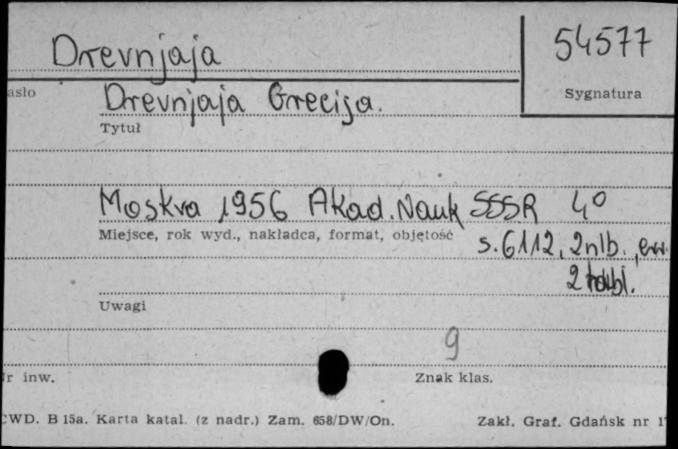 Drevnjaja
54577
asło
Drevnjaja Grecija.
Sygnatura
Tytuł
Moskva 1956 Akad. Nauk SSSR 4°
Miejsce, rok wyd., nakładca, format, objętość
s. 6112, 2nlb.,
2 tabl.
Uwagi
9
Nr inw.
Znak klas.
CWD. B 15a. Karta katal. (z nadr.) Zam. 658/DW/On.
Zakł. Graf. Gdańsk nr 1